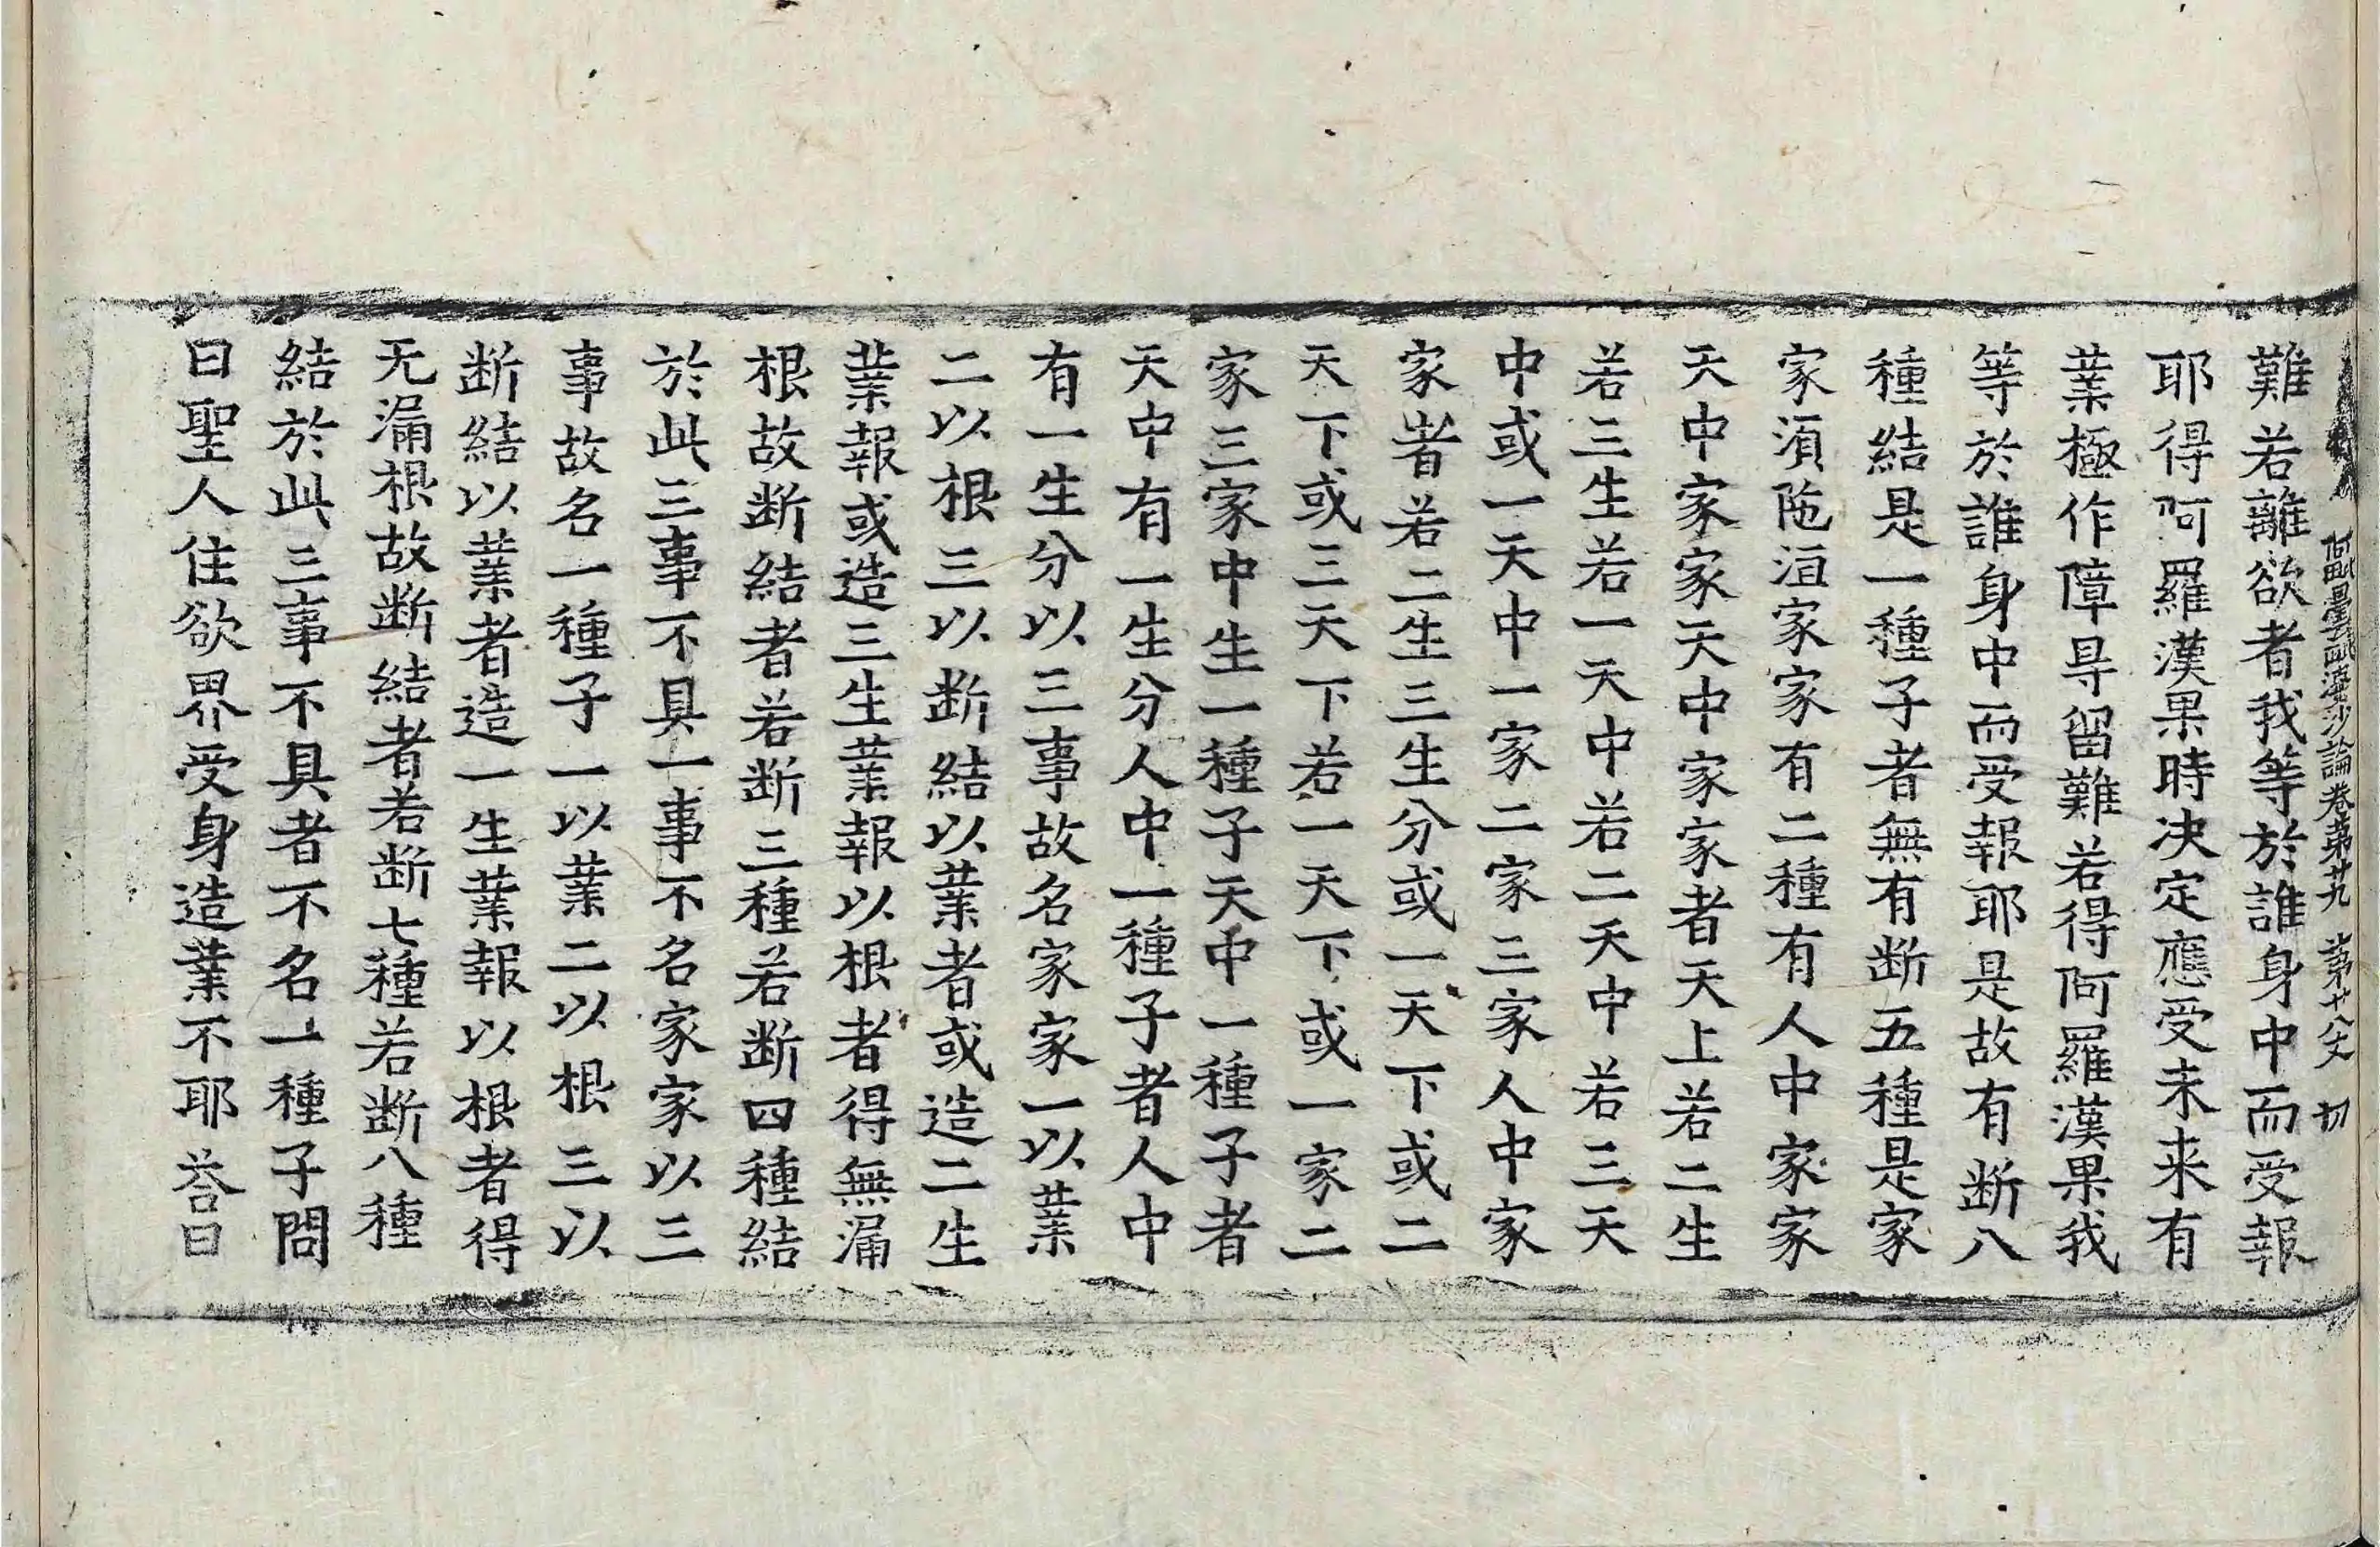 阿毗曇毗婆沙論卷第廿九 第十八丈 切
難若離欲者我等於誰身中而受報
耶得阿羅漢果時决定應受未来有
業極作障㝵留難若得阿羅漢果我
等於誰身中而受報耶是故有断八
種結是一種子者無有断五種是家
家湏陁洹家家有二種有人中家家
天中家家天中家家者天上若二生
若三生若一天中若二天中若三天
中或一天中一家二家三家人中家
家者若二生三生分或一天下或二
天下或三天下若一天下或一家二
家三家中生一種子天中一種子者
天中有一生分人中一種子者人中
有一生分以三事故名家家一以業
二以根三以断結以業者或造二生
業報或造三生業報以根者得無漏
根故断結者若断三種若断四種結
於此三事不具一事不名家家以三
事故名一種子一以業二以根三以
断結以業者造一生業報以根者得
无漏根故断結者若断七種若断八種
結於此三事不具者不名一種子問
曰聖人住欲界受身造業不耶荅曰